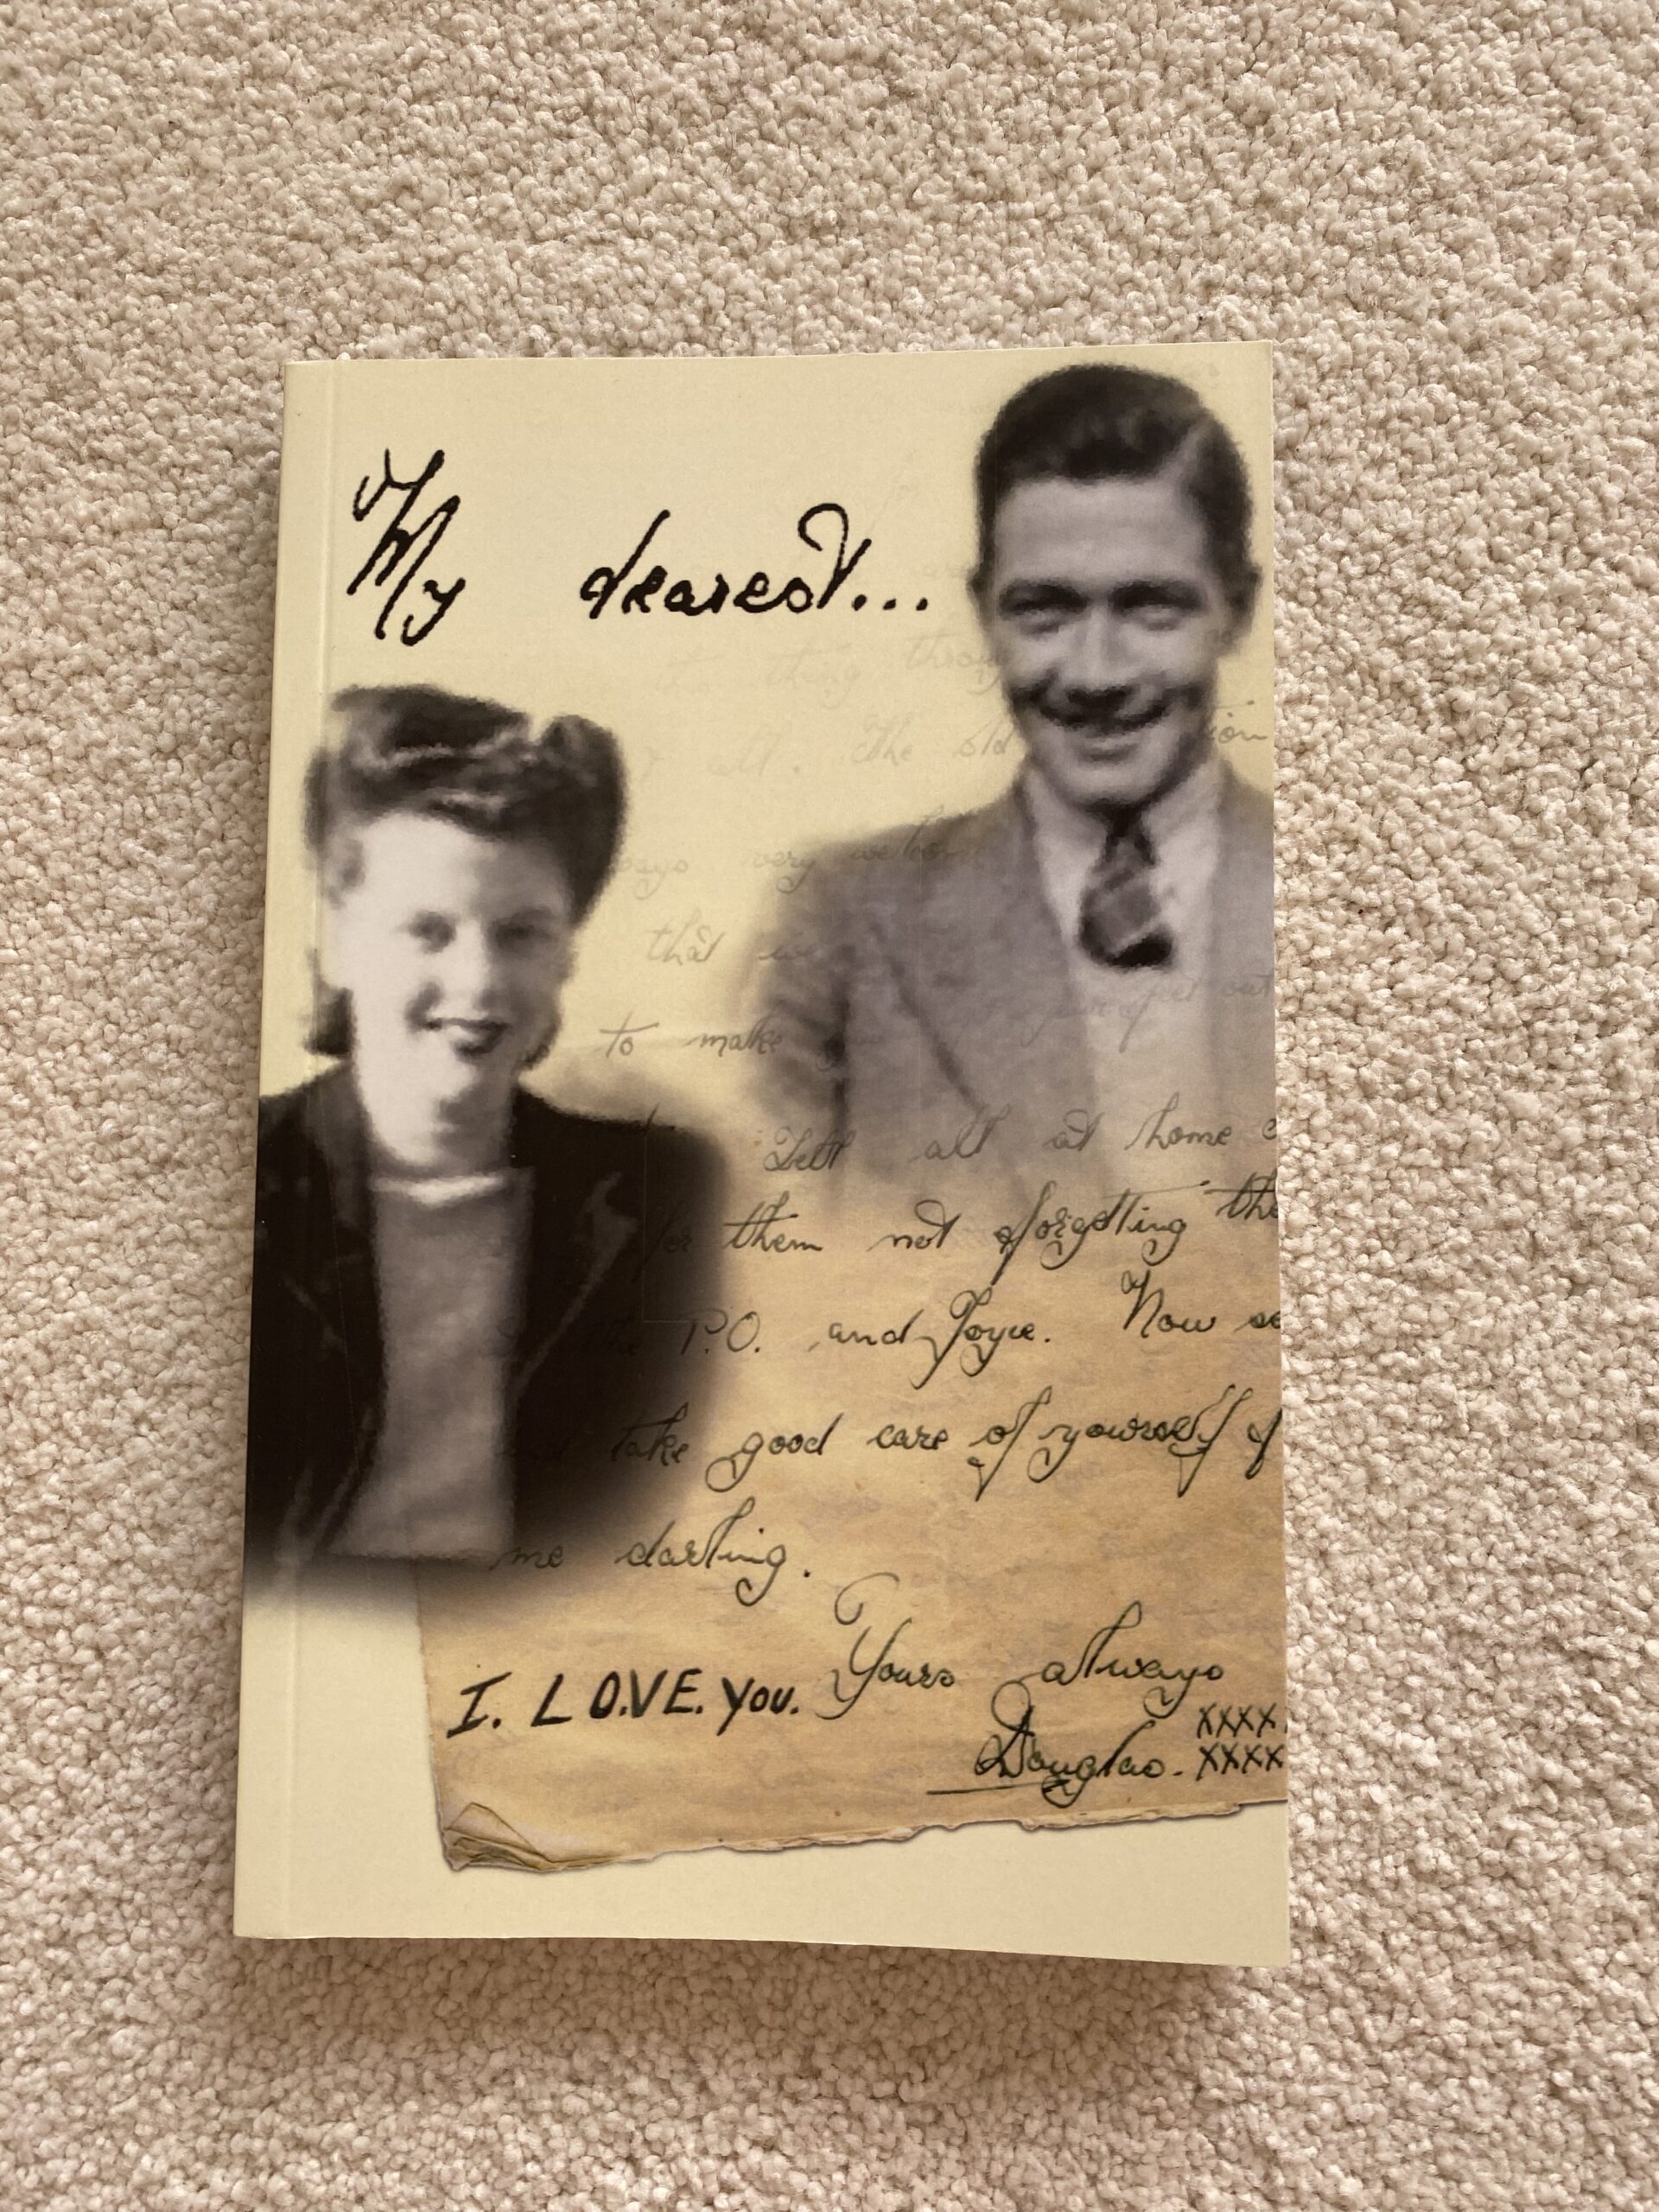 My dearest...
thing
all. The old
very
that
to make
Tell all at home
them not forgetting the
P.O. and Joyce. Now
take good care of yourself
me darling.
I. L.O.V.E. YOU.
Yours always
Douglas. XXXX
XXXX